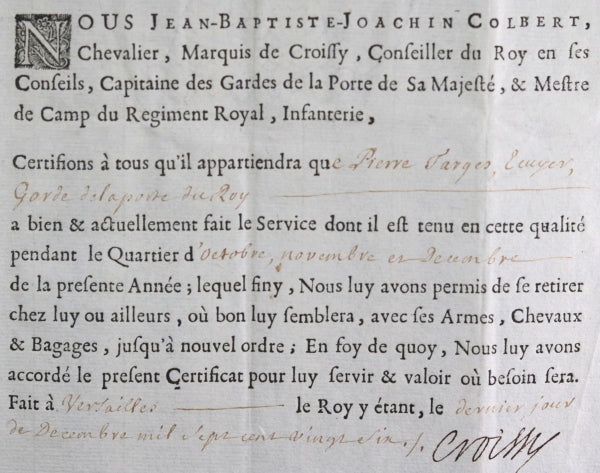 NOUS JEAN-BAPTISTE-JOACHIN COLBERT,
Chevalier, Marquis de Croiſſy, Conſeiller du Roy en ſes
Conſeils, Capitaine des Gardes de la Porte de Sa Majeſté, & Meſtre
de Camp du Regiment Royal, Infanterie,
Certifions à tous qu'il appartiendra que Pierre Farges, Ecuyer,
Garde de la porte du Roy
a bien & actuellement fait le Service dont il eſt tenu en cette qualité
pendant le Quartier d'octobre, novembre et Decembre
de la preſente Année; lequel finy, Nous luy avons permis de ſe retirer
chez luy ou ailleurs, où bon luy ſemblera, avec ſes Armes, Chevaux
& Bagages, juſqu'à nouvel ordre; En foy de quoy, Nous luy avons
accordé le preſent Certificat pour luy ſervir & valoir où beſoin ſera.
Fait à Versailles le Roy y étant, le dernier jour
de Decembre mil sept cent vingt six ./. Croissy